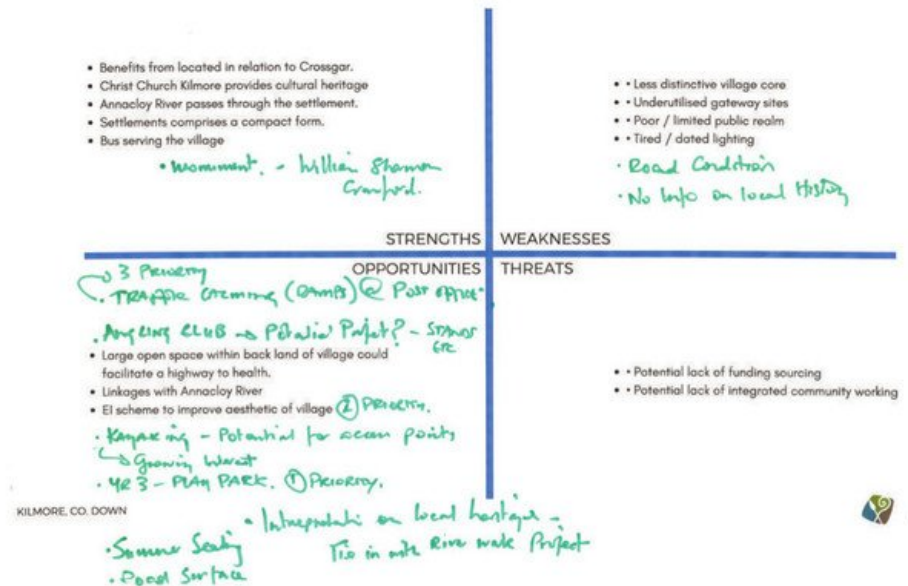 • Benefits from located in relation to Crossgar.
• Christ Church Kilmore provides cultural heritage
• Annacloy River passes through the settlement.
• Settlements comprises a compact form.
• Bus serving the village
• Monument. - William Sharman
Crawford.
• • Less distinctive village core
• • Underutilised gateway sites
• • Poor / limited public realm
• • Tired / dated lighting
• Road Condition
• No Info on local History
STRENGTHS
WEAKNESSES
OPPORTUNITIES
THREATS
3 PRIORITY
• TRAFFIC CALMING (RAMPS) @ POST OFFICE
• ANGLING CLUB → Potential Project? - STANDS
ETC
• Large open space within back land of village could
facilitate a highway to health.
• Linkages with Annacloy River
• EI scheme to improve aesthetic of village ② PRIORITY.
• Kayaking - Potential for access points
↳ Growing Interest
• YR 3 - PLAY PARK. ① PRIORITY.
• • Potential lack of funding sourcing
• • Potential lack of integrated community working
KILMORE, CO. DOWN
• on local heritage -
Tie in with River walk Project
• Summer Seating
• Road Surface